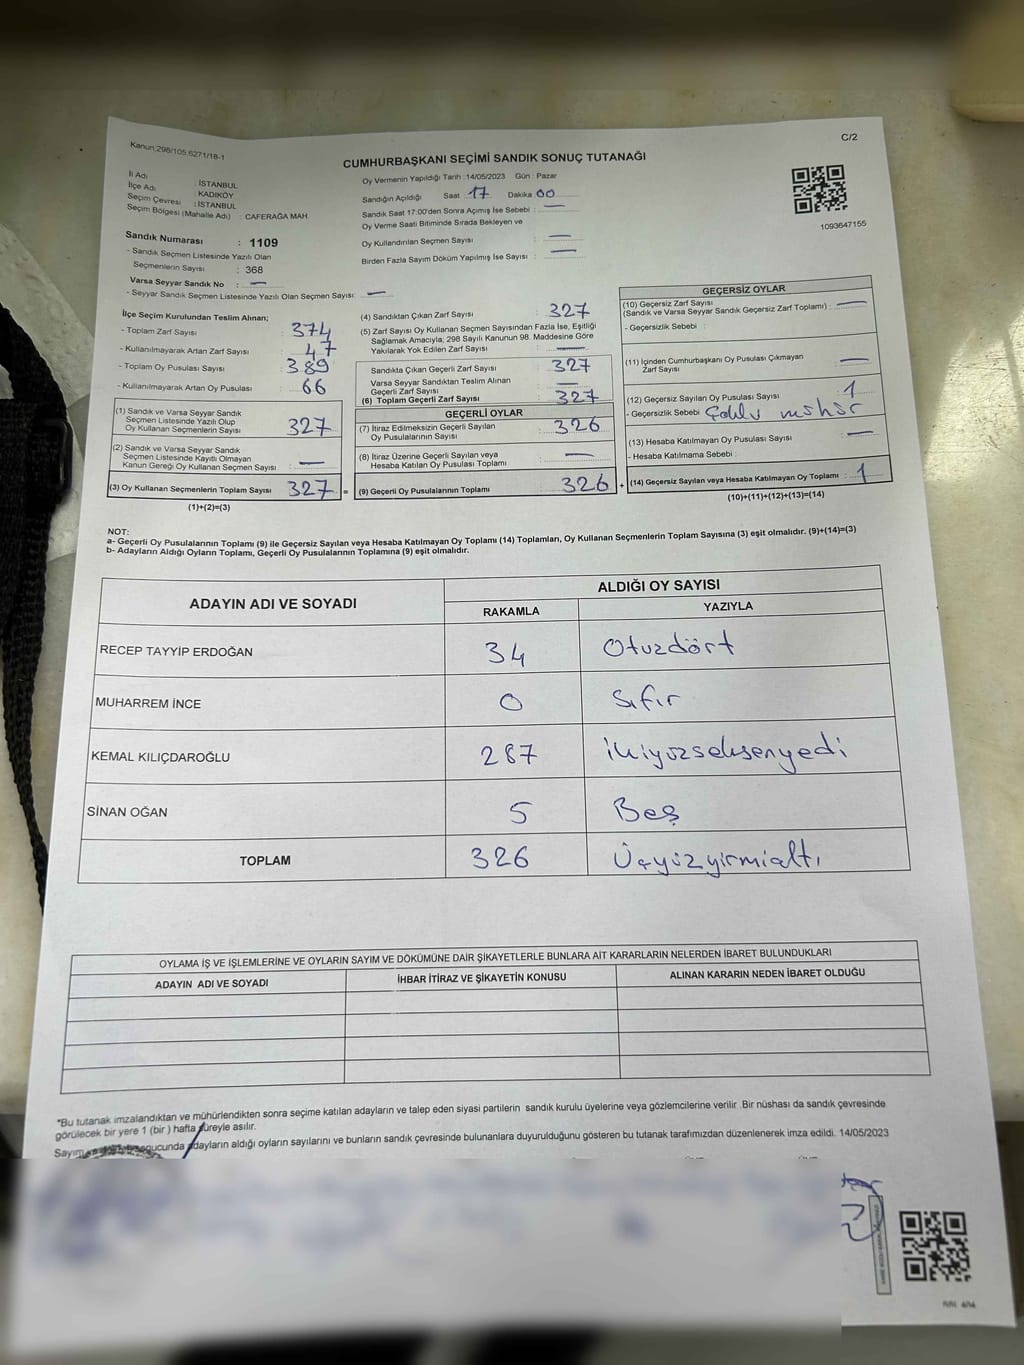 Kanun:298/105,6271/18-1
C/2
CUMHURBAŞKANI SEÇİMİ SANDIK SONUÇ TUTANAĞI
İl Adı : İSTANBUL
İlçe Adı : KADIKÖY
Seçim Çevresi : İSTANBUL
Seçim Bölgesi (Mahalle Adı) : CAFERAĞA MAH
Sandık Numarası : 1109
- Sandık Seçmen Listesinde Yazılı Olan
Seçmenlerin Sayısı : 368
Varsa Seyyar Sandık No : —
- Seyyar Sandık Seçmen Listesinde Yazılı Olan Seçmen Sayısı: —
Oy Vermenin Yapıldığı Tarih :14/05/2023 Gün : Pazar
Sandığın Açıldığı Saat 17 Dakika 00
Sandık Saat 17:00'den Sonra Açımış İse Sebebi : —
Oy Verme Saati Bitiminde Sırada Bekleyen ve
Oy Kullandırılan Seçmen Sayısı : —
Birden Fazla Sayım Döküm Yapılmış İse Sayısı : —
1093647155
İlçe Seçim Kurulundan Teslim Alınan;
- Toplam Zarf Sayısı : 374
- Kullanılmayarak Artan Zarf Sayısı : 47
- Toplam Oy Pusulası Sayısı : 389
- Kullanılmayarak Artan Oy Pusulası : 66
(1) Sandık ve Varsa Seyyar Sandık
Seçmen Listesinde Yazılı Olup
Oy Kullanan Seçmenlerin Sayısı : 327
(2) Sandık ve Varsa Seyyar Sandık
Seçmen Listesinde Kayıtlı Olmayan
Kanun Gereği Oy Kullanan Seçmen Sayısı : —
(3) Oy Kullanan Seçmenlerin Toplam Sayısı : 327 =
(1)+(2)=(3)
(4) Sandıktan Çıkan Zarf Sayısı : 327
(5) Zarf Sayısı Oy Kullanan Seçmen Sayısından Fazla İse, Eşitliği
Sağlamak Amacıyla; 298 Sayılı Kanunun 98. Maddesine Göre
Yakılarak Yok Edilen Zarf Sayısı : —
Sandıkta Çıkan Geçerli Zarf Sayısı : 327
Varsa Seyyar Sandıktan Teslim Alınan
Geçerli Zarf Sayısı : —
(6) Toplam Geçerli Zarf Sayısı : 327
GEÇERLİ OYLAR
(7) İtiraz Edilmeksizin Geçerli Sayılan
Oy Pusulalarının Sayısı : 326
(8) İtiraz Üzerine Geçerli Sayılan veya
Hesaba Katılan Oy Pusulası Toplamı : —
(9) Geçerli Oy Pusulalarının Toplamı : 326 +
GEÇERSİZ OYLAR
(10) Geçersiz Zarf Sayısı
(Sandık ve Varsa Seyyar Sandık Geçersiz Zarf Toplamı) : —
- Geçersizlik Sebebi :
(11) İçinden Cumhurbaşkanı Oy Pusulası Çıkmayan
Zarf Sayısı : —
(12) Geçersiz Sayılan Oy Pusulası Sayısı : 1
- Geçersizlik Sebebi Çoklu mühür
(13) Hesaba Katılmayan Oy Pusulası Sayısı : —
- Hesaba Katılmama Sebebi :
(14) Geçersiz Sayılan veya Hesaba Katılmayan Oy Toplamı : 1
(10)+(11)+(12)+(13)=(14)
NOT:
a- Geçerli Oy Pusulalarının Toplamı (9) ile Geçersiz Sayılan veya Hesaba Katılmayan Oy Toplamı (14) Toplamları, Oy Kullanan Seçmenlerin Toplam Sayısına (3) eşit olmalıdır. (9)+(14)=(3)
b- Adayların Aldığı Oyların Toplamı, Geçerli Oy Pusulalarının Toplamına (9) eşit olmalıdır.
ADAYIN ADI VE SOYADI
ALDIĞI OY SAYISI
RAKAMLA YAZIYLA
RECEP TAYYİP ERDOĞAN 34 Otuzdört
MUHARREM İNCE 0 Sıfır
KEMAL KILIÇDAROĞLU 287 ikiyüzseksenyedi
SİNAN OĞAN 5 Beş
TOPLAM 326 Üçyüzyirmialtı
OYLAMA İŞ VE İŞLEMLERİNE VE OYLARIN SAYIM VE DÖKÜMÜNE DAİR ŞİKAYETLERLE BUNLARA AİT KARARLARIN NELERDEN İBARET BULUNDUKLARI
ADAYIN ADI VE SOYADI İHBAR İTİRAZ VE ŞİKAYETİN KONUSU ALINAN KARARIN NEDEN İBARET OLDUĞU
*Bu tutanak imzalandıktan ve mühürlendikten sonra seçime katılan adayların ve talep eden siyasi partilerin sandık kurulu üyelerine veya gözlemcilerine verilir .Bir nüshası da sandık çevresinde
görülecek bir yere 1 (bir ) hafta süreyle asılır.
Sayım adayların aldığı oyların sayılarını ve bunların sandık çevresinde bulunanlara duyurulduğunu gösteren bu tutanak tarafımızdan düzenlenerek imza edildi. 14/05/2023